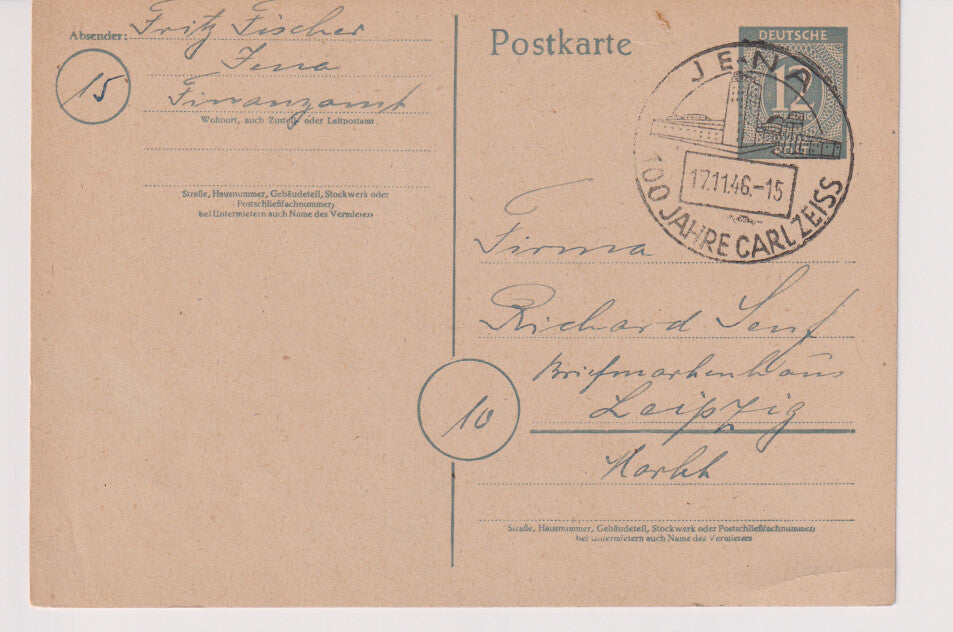 Absender: Fritz Fischer
15
Jena
Finanzamt
Wohnort, auch Zustell- oder Leitpostamt
Straße, Hausnummer, Gebäudeteil, Stockwerk oder
Postschließfachnummer;
bei Untermietern auch Name des Vermieters
Postkarte
DEUTSCHE
12
PFENNIG
POST
JENA
17.11.46.-15
100 JAHRE CARL ZEISS
Firma
Richard Senf
Briefmarkenhaus
10
Leipzig
Markt
Straße, Hausnummer, Gebäudeteil, Stockwerk oder Postschließfachnummer;
bei Untermietern auch Name des Vermieters